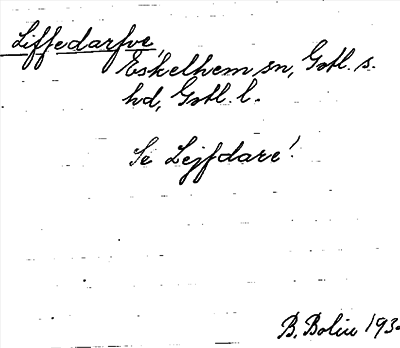 Liffedarfve,
Eskelhem sn, Gotl. s.
hd, Gotl. l.
Se Lejfdare!
B. Bolin 193